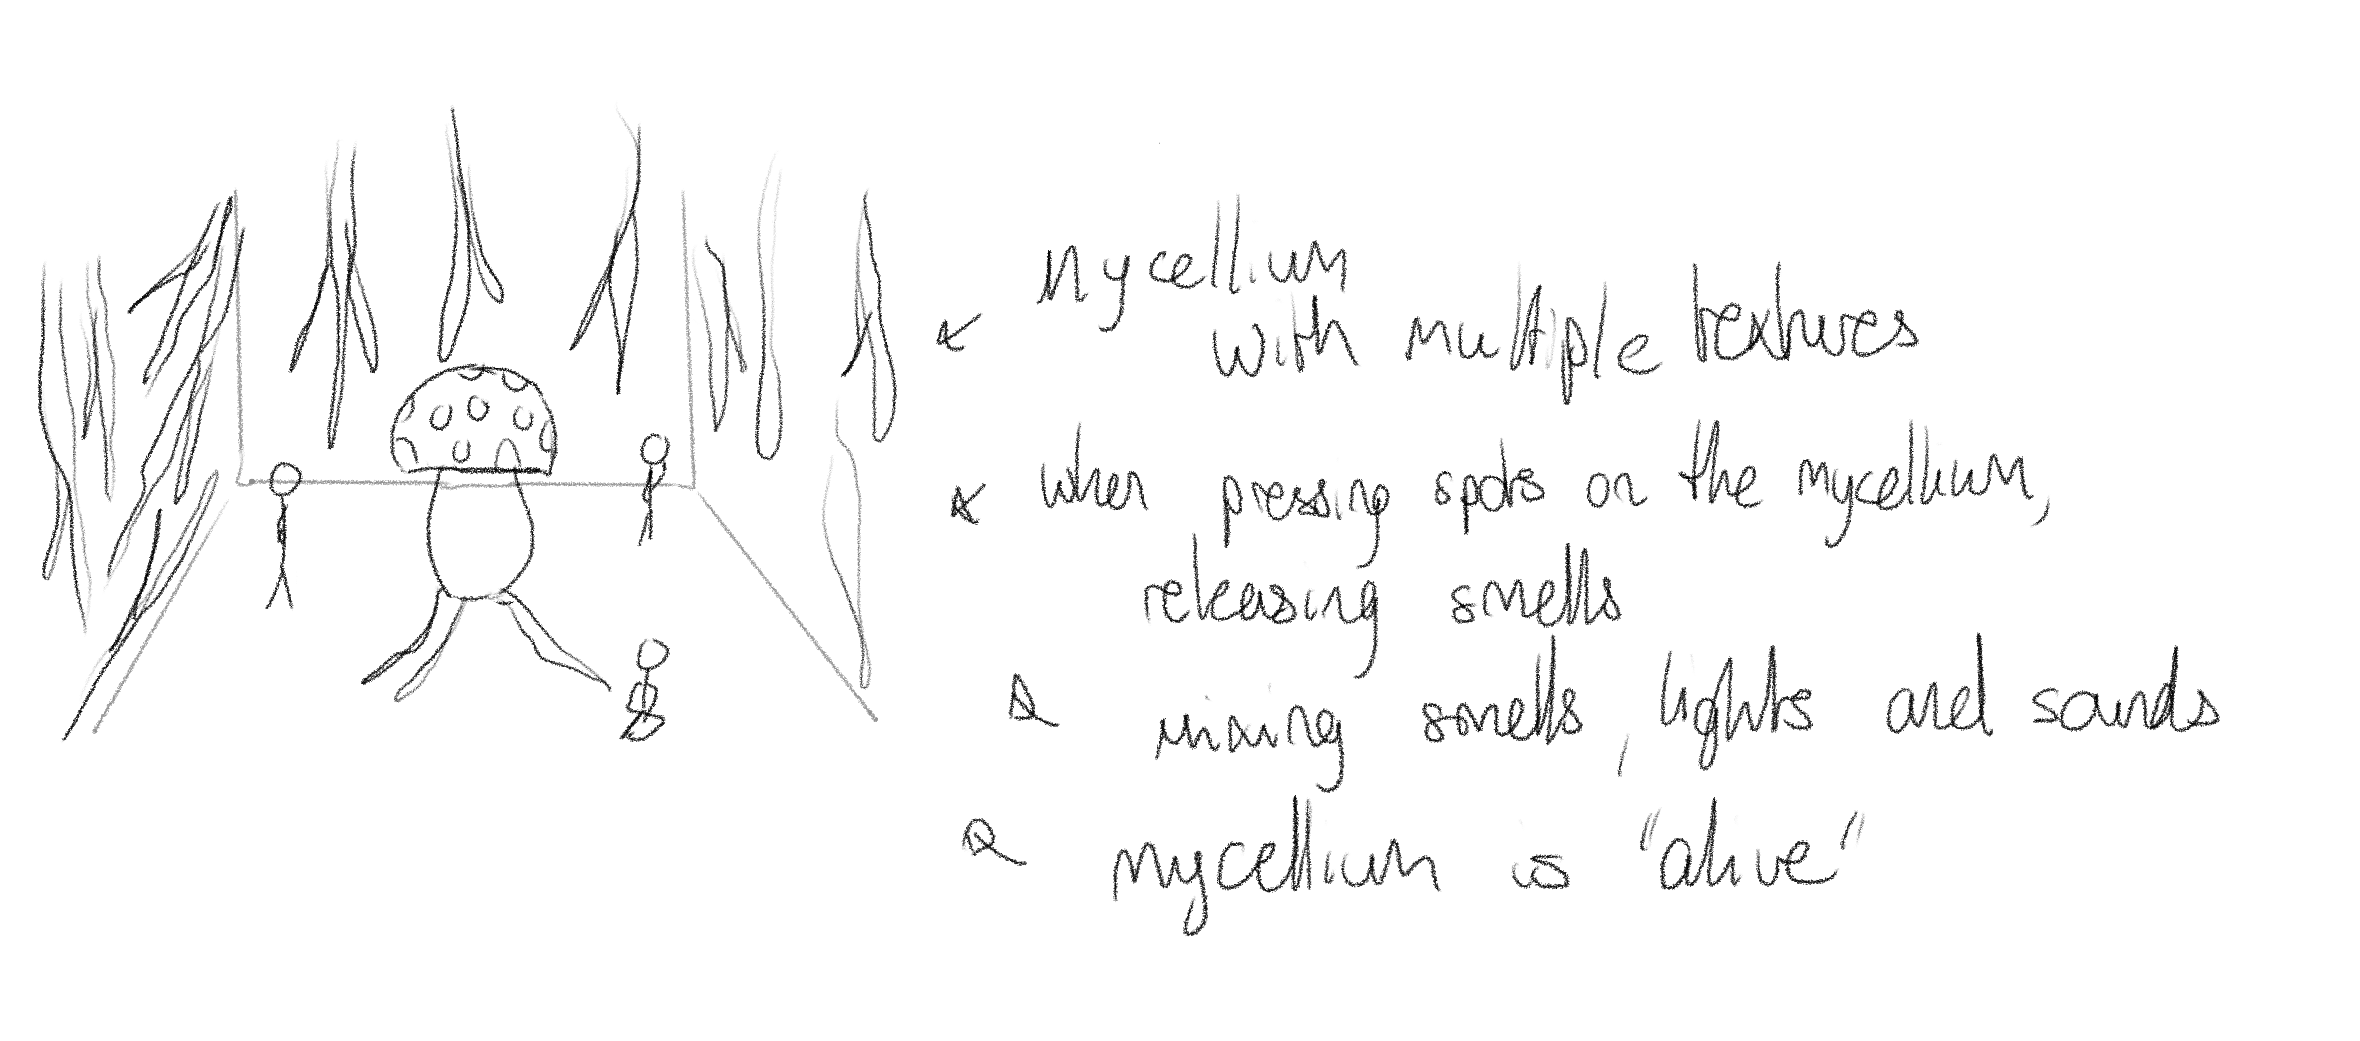 Mycellium
with multiple textures
when pressing spots on the mycellium,
releasing smells
mixing smells, lights and sounds
mycellium is "alive"